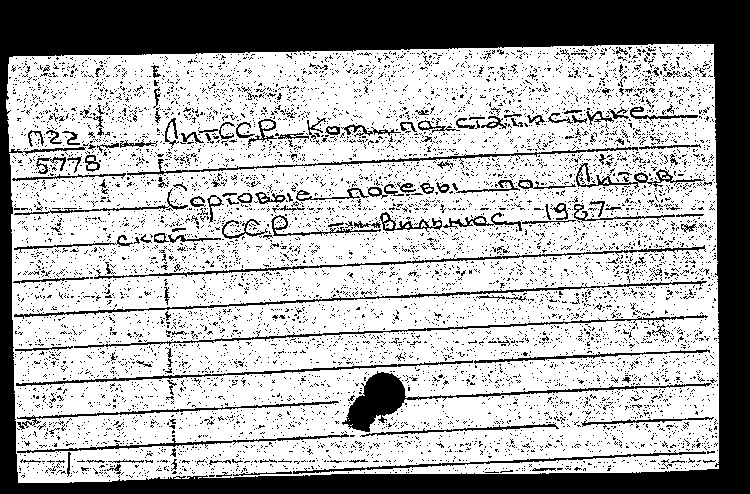 П22 ЛитССР. Ком. по статистике.
5778
Сортовые посевы по Литов-
ской ССР. — Вильнюс, 1987-